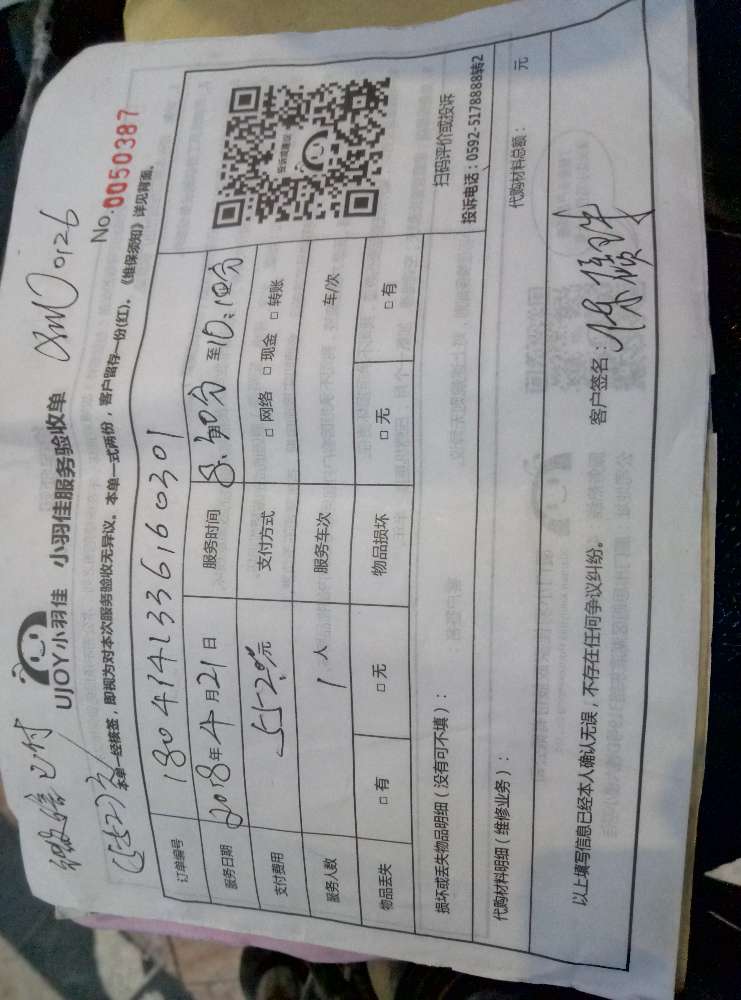 微信已付
(552元)
UJOY小羽佳 小羽佳服务验收单
No.0050387
本单一经核签,即视为对本次服务验收无异议。本单一式两份,客户留存一份(红),《维保须知》详见背面。
订单编号 180414133616030l
服务日期 2018年4月21日 服务时间 8:30分 至10:10分
支付费用 552.00元 支付方式 □ 网络 □ 现金 □ 转账
服务人数 1 人 服务车次 车/次
物品丢失 □ 有 □ 无 物品损坏 □ 无 □ 有
投诉或建议
扫码评价或投诉
投诉电话:0592-5178888转2
损坏或丢失物品明细(没有可不填):
代购材料明细(维修业务): 代购材料总额: 元
以上填写信息已经本人确认无误,不存在任何争议纠纷。 客户签名: